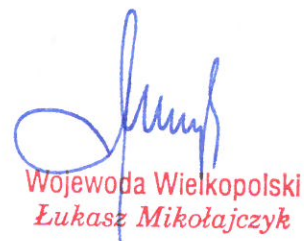 Wojewoda Wielkopolski
Łukasz Mikołajczyk